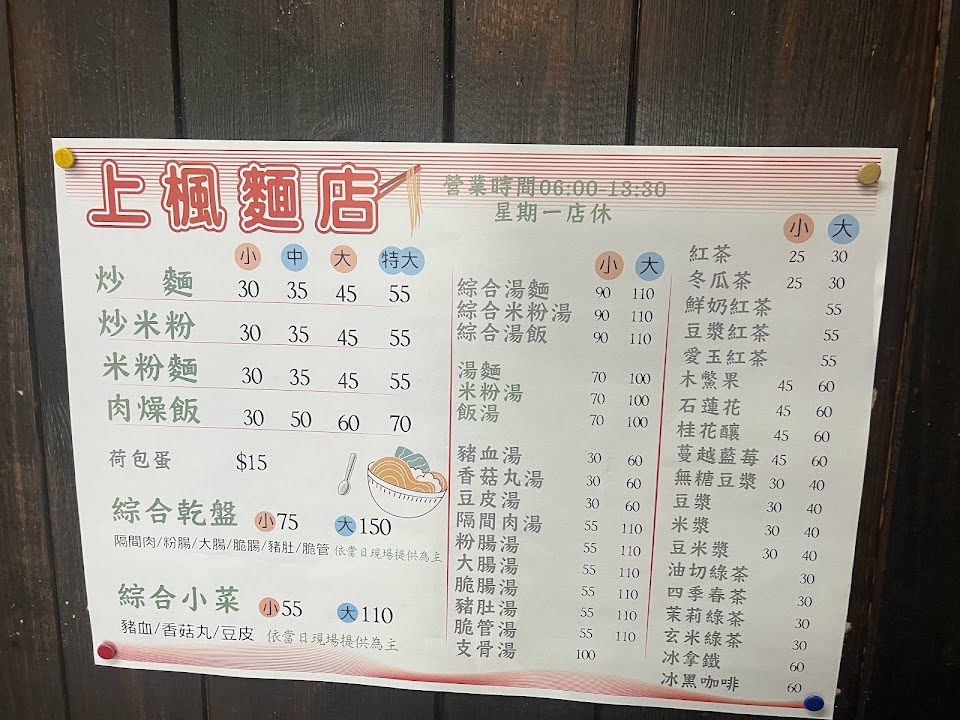 上楓麵店
營業時間06:00-13:30
星期一店休
小 中 大 特大
炒麵 30 35 45 55
炒米粉 30 35 45 55
米粉麵 30 35 45 55
肉燥飯 30 50 60 70
荷包蛋 $15
綜合乾盤 小75 大150
隔間肉/粉腸/大腸/脆腸/豬肚/脆管 依當日現場提供為主
綜合小菜 小55 大110
豬血/香菇丸/豆皮 依當日現場提供為主
小 大
綜合湯麵 90 110
綜合米粉湯 90 110
綜合湯飯 90 110
湯麵 70 100
米粉湯 70 100
飯湯 70 100
豬血湯 30 60
香菇丸湯 30 60
豆皮湯 30 60
隔間肉湯 55 110
粉腸湯 55 110
大腸湯 55 110
脆腸湯 55 110
豬肚湯 55 110
脆管湯 55 110
支骨湯 100
小 大
紅茶 25 30
冬瓜茶 25 30
鮮奶紅茶 55
豆漿紅茶 55
愛玉紅茶 55
木鱉果 45 60
石蓮花 45 60
桂花釀 45 60
蔓越藍莓 45 60
無糖豆漿 30 40
豆漿 30 40
米漿 30 40
豆米漿 30 40
油切綠茶 30
四季春茶 30
茉莉綠茶 30
玄米綠茶 30
冰拿鐵 60
冰黑咖啡 60